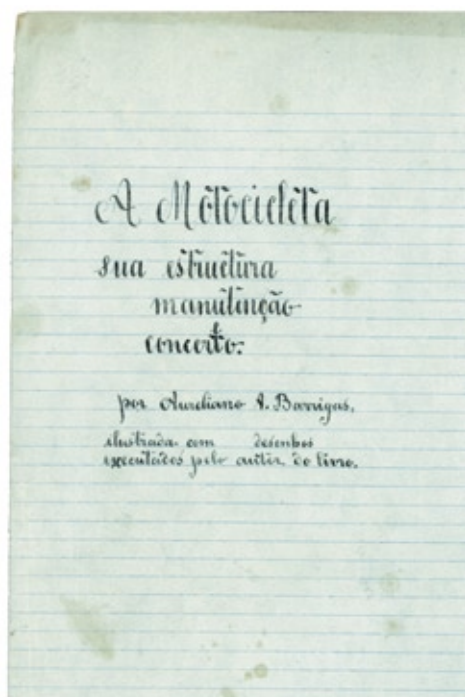 A Motocicleta
sua estructura
manutenção
e
concerto:
por Aureliano A. Barrigas,
ilustrada com desenhos
executados pelo autor do livro.